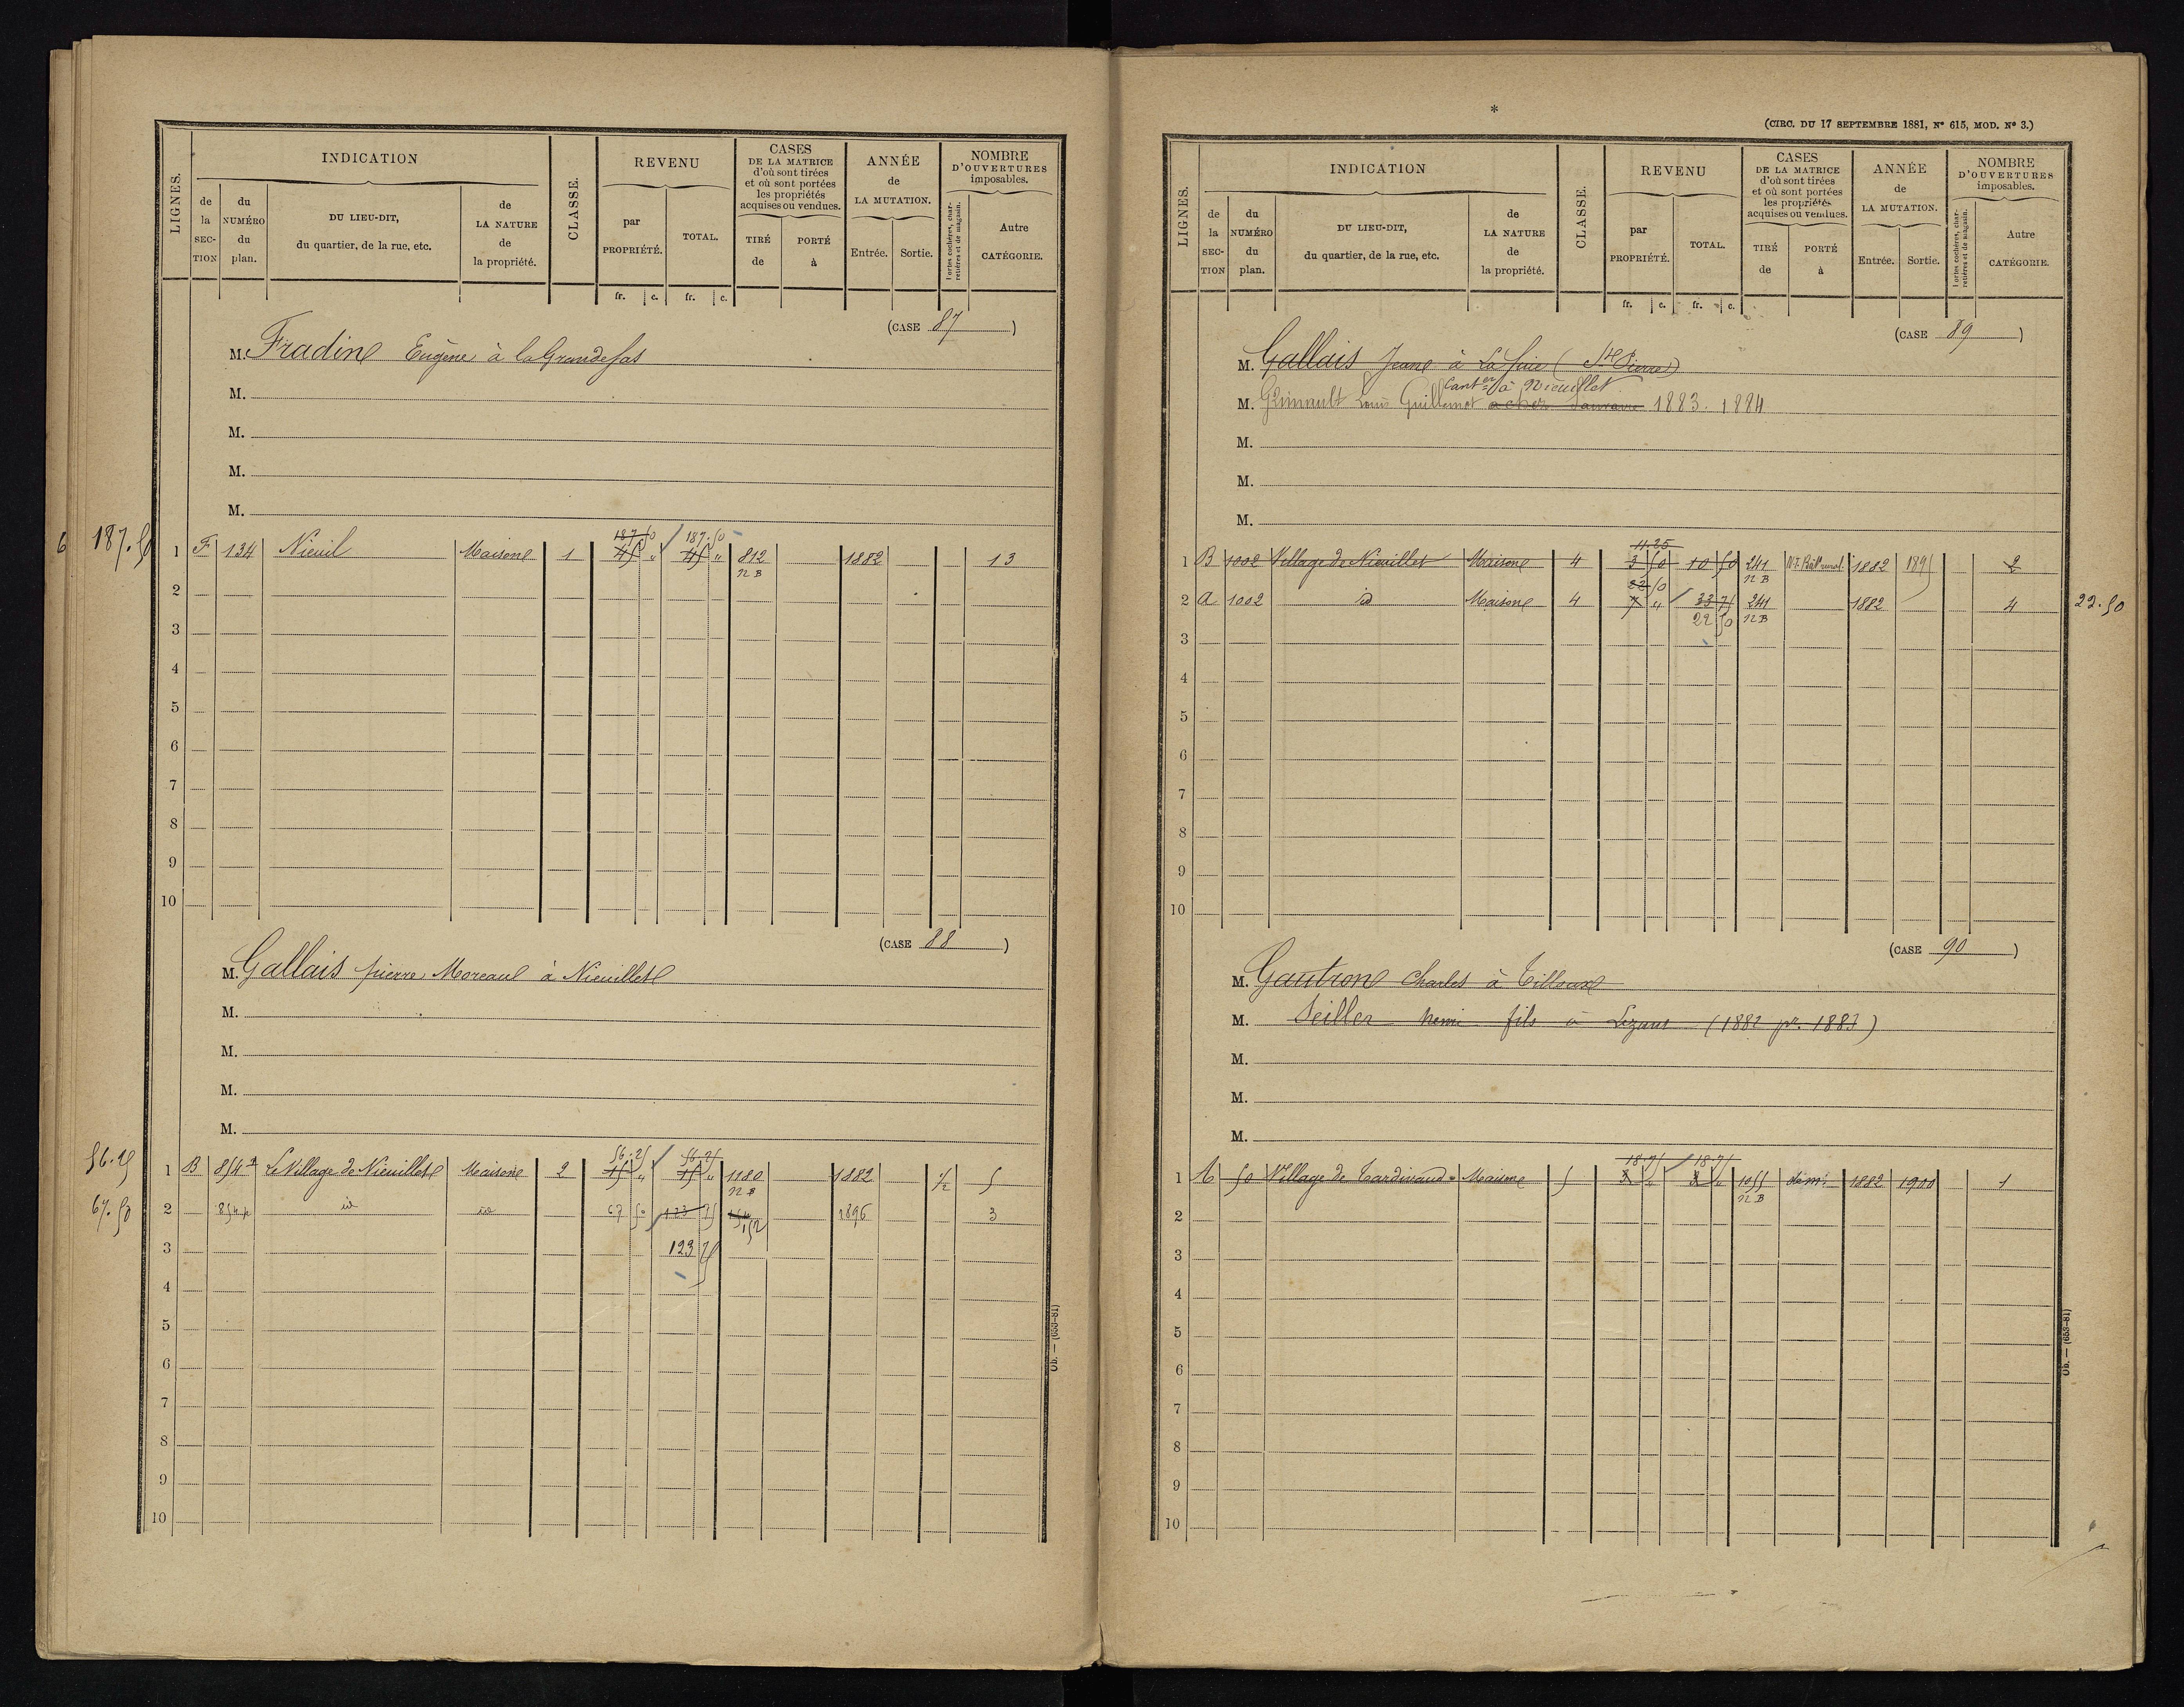 INDICATION
REVENU
CASES
DE LA MATRICE
d'où sont tirées
et où sont portées
les propriétés
acquises ou vendues.
ANNÉE
de
LA MUTATION.
NOMBRE
D'OUVERTURES
imposables.
LIGNES.
de la SECTION
du NUMÉRO du plan.
DU LIEU-DIT,
du quartier, de la rue, etc.
de LA NATURE de la propriété.
CLASSE.
par PROPRIÉTÉ.
TOTAL.
TIRÉ de
PORTÉ à
Entrée.
Sortie.
Portes cochères, charretières et de magasin.
Autre CATÉGORIE.
fr. c. fr. c.
(CASE 87)
M. Fradin Eugène à la Grandefas
M.
M.
M.
M.
6 187.50
187.50 187.50
1 F 134 Nieuil Maison 1 45 " 45 " 812 1882 13
NB
2
3
4
5
6
7
8
9
10
(CASE 88)
M. Gallais pierre Moreau à Nieuillet
M.
M.
M.
M.
56.25 56.25
56.25 1 B 854 Le Village de Nieuillet Maison 2 15 " 15 " 1180 1882 1/2 5
NB
67.50 2 854 p id id 67 50 123 75 152 1896 3
3 123 75
4
5
6
7
8
9
10
Ob. — (653-81)
*
(CIRC. DU 17 SEPTEMBRE 1881, N° 615, MOD. N° 3.)
INDICATION
REVENU
CASES
DE LA MATRICE
d'où sont tirées
et où sont portées
les propriétés
acquises ou vendues.
ANNÉE
de
LA MUTATION.
NOMBRE
D'OUVERTURES
imposables.
LIGNES.
de la SECTION
du NUMÉRO du plan.
DU LIEU-DIT,
du quartier, de la rue, etc.
de LA NATURE de la propriété.
CLASSE.
par PROPRIÉTÉ.
TOTAL.
TIRÉ de
PORTÉ à
Entrée.
Sortie.
Portes cochères, charretières et de magasin.
Autre CATÉGORIE.
fr. c. fr. c.
(CASE 89)
M. Gallais Jean à La (St Pierre)
Cantier à Nieuillet
M. Louis Guillemot 1883. 1884
M.
M.
M.
11.25
1 B 1002 Village de Nieuillet Maison 4 3 50 10 50 241 1882 1895 2
22 50 NB
2 A 1002 id Maison 4 7 " 33 75 241 1882 4 22.50
22 50 NB
3
4
5
6
7
8
9
10
(CASE 90)
M. Gautron Charles à Tilloux
M. Seiller fils à (1882 pr. 1883)
M.
M.
M.
18.75 18.75
1 A 50 Village de Tardivaud Maison 5 3 " 3 " 1055 démi 1882 1900 1
NB
2
3
4
5
6
7
8
9
10
Ob. — (653-81)